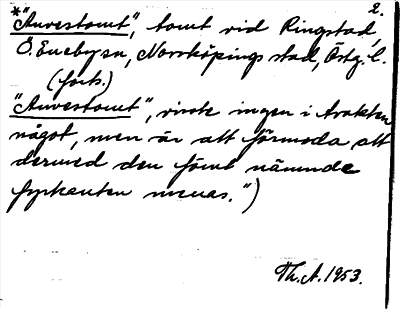 2.
*"Anvestomt", tomt vid Ringstad,
Ö. Eneby sn, Norrköpings stad, Östg. l.
(forts.)
"Anvestomt", viste ingen i Trakten
något, men är att förmoda att
dermed den först nämnde
fyrkanten menas.")
Th. A. 1953.